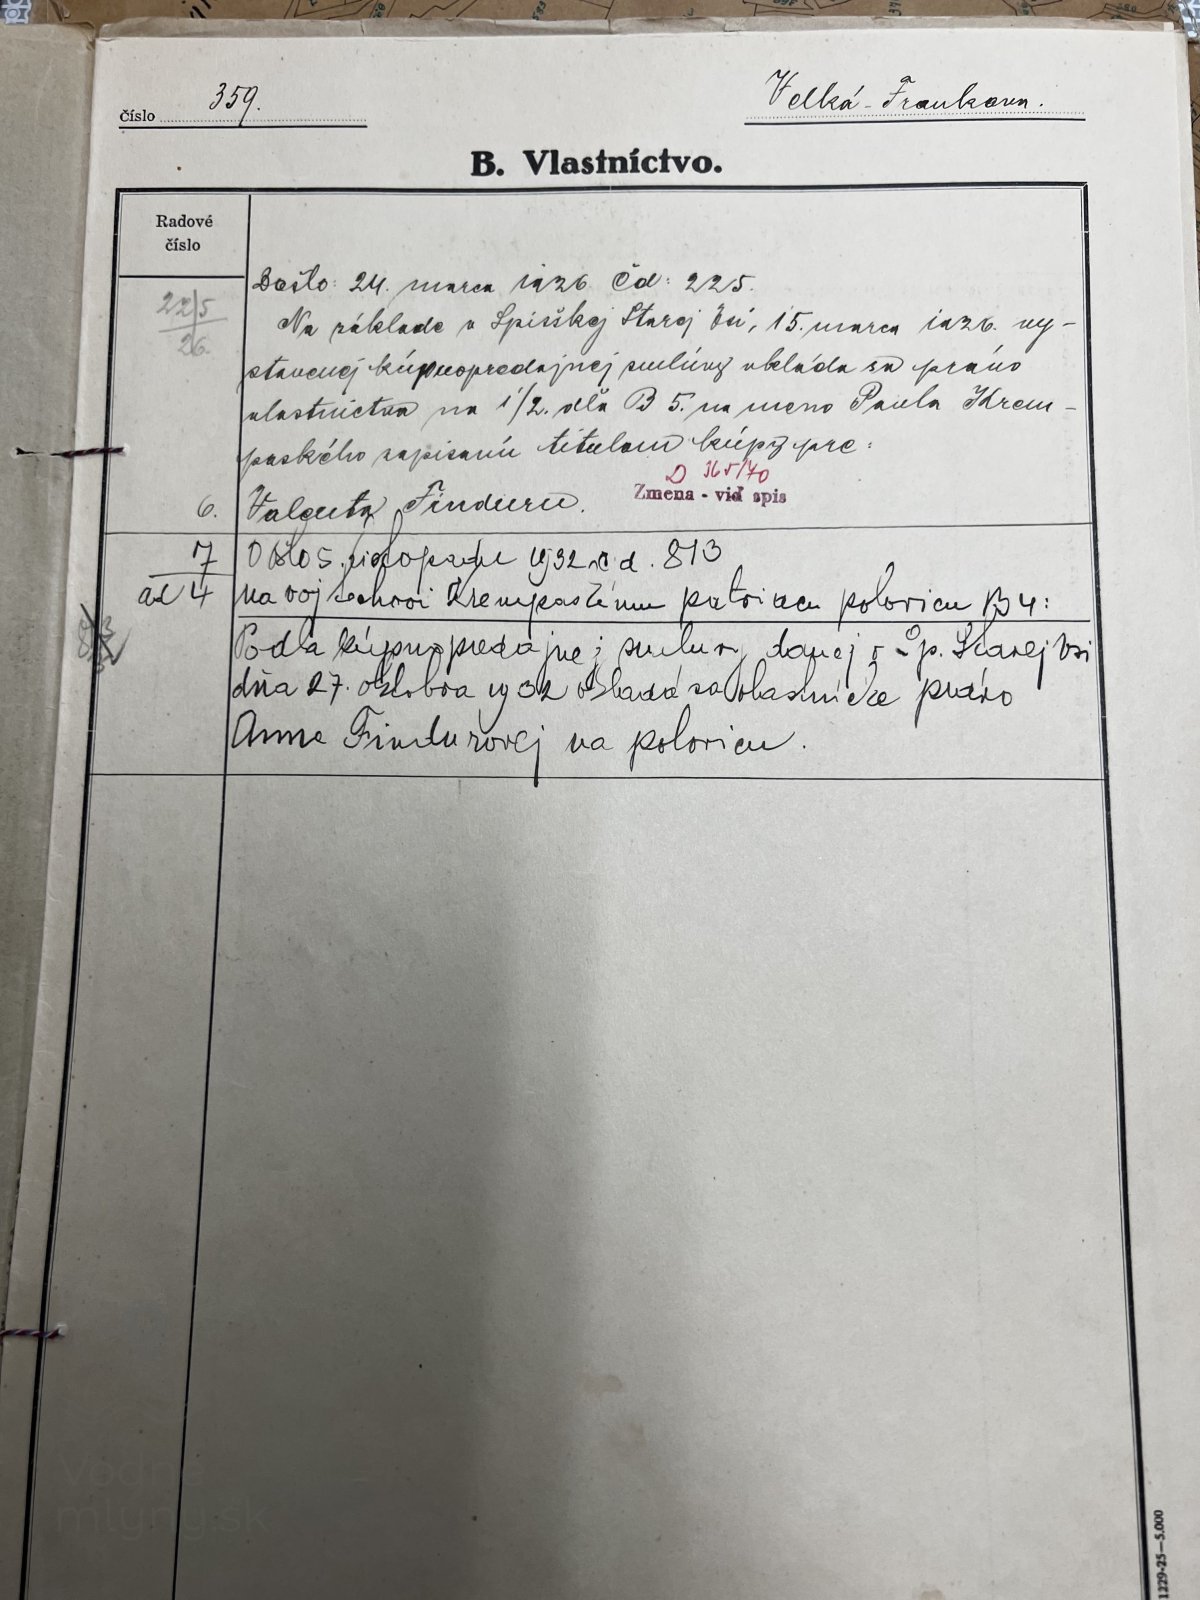 číslo 359.
Velká-Frankova.
B. Vlastníctvo.
Radové
číslo
225
26.
Došlo: 24. marca 1926 Čd: 225.
Na základe v Spišskej Starej Vsi, 15. marca 1926. vy-
stavenej kúpnopredajnej smlúvy vkláda sa právo
vlastníctva na 1/2. dľa B 5. na meno Paula Krem-
paského zapísanú titulom kúpy pre:
D 365/70
Zmena - viď spis
6. Valenta Finduru.
7 Došlo 5. listopadu 1932 č d. 813
ad 4 na Vojtechovi Krempaskému patriacu polovicu B 4:
Podľa kúpnopredajnej smluvy danej v Sp. Starej Vsi
dňa 27. októbra 1932 vkladá sa vlastnícke právo
Anne Findurovej na polovicu.
Vodné
mlyny.sk
1229-25—5.000